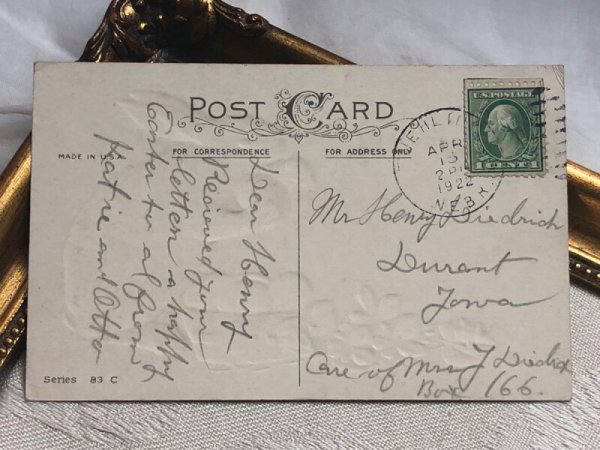 POST CARD
FOR CORRESPONDENCE
FOR ADDRESS ONLY
MADE IN U.S.A.
Dear Henry
Recieved your
letter a happy
Easter to al from
Katie and Otto
U.S. POSTAGE
1 CENT 1
APR
13
1922
NEBR.
Mr Henry Diedrich
Durant
Iowa
Care of Mrs J Diedrich
Box 166.
Series 83 C